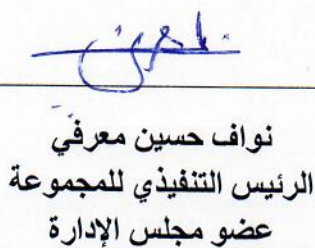 نواف حسين معرفي
الرئيس التنفيذي للمجموعة
عضو مجلس الإدارة